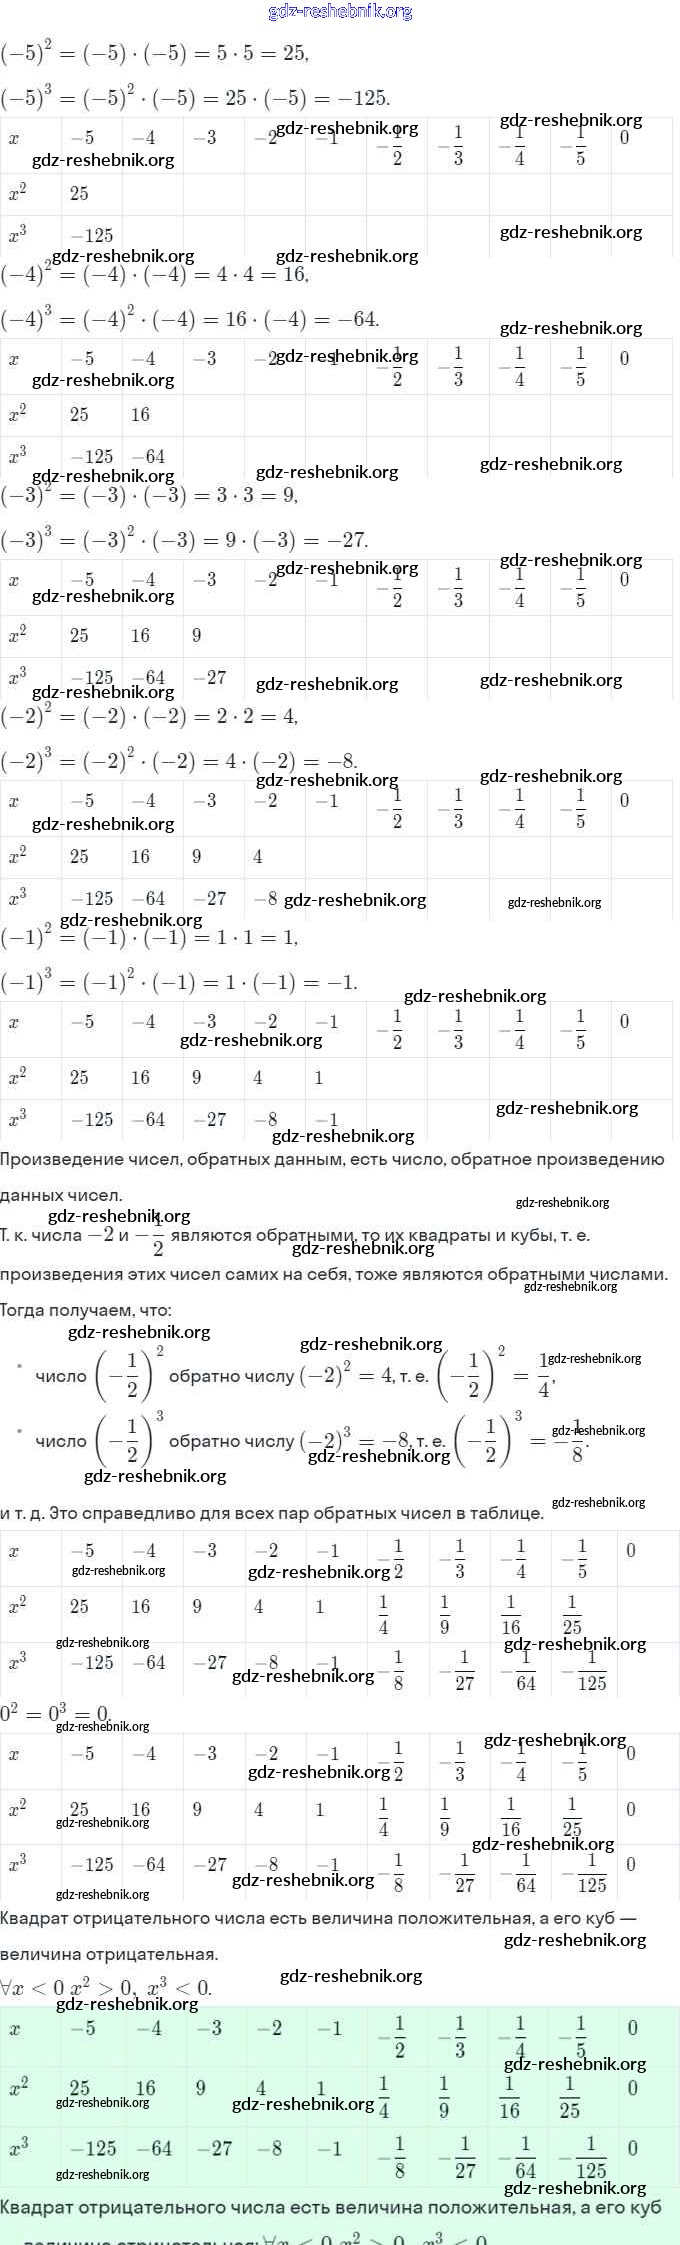 gdz-reshebnik.org
(−5)² = (−5) · (−5) = 5 · 5 = 25,
(−5)³ = (−5)² · (−5) = 25 · (−5) = −125.
x −5 −4 −3 −2 −1 −1/2 −1/3 −1/4 −1/5 0
x² 25
x³ −125
(−4)² = (−4) · (−4) = 4 · 4 = 16,
(−4)³ = (−4)² · (−4) = 16 · (−4) = −64.
x −5 −4 −3 −2 −1 −1/2 −1/3 −1/4 −1/5 0
x² 25 16
x³ −125 −64
(−3)² = (−3) · (−3) = 3 · 3 = 9,
(−3)³ = (−3)² · (−3) = 9 · (−3) = −27.
x −5 −4 −3 −2 −1 −1/2 −1/3 −1/4 −1/5 0
x² 25 16 9
x³ −125 −64 −27
(−2)² = (−2) · (−2) = 2 · 2 = 4,
(−2)³ = (−2)² · (−2) = 4 · (−2) = −8.
x −5 −4 −3 −2 −1 −1/2 −1/3 −1/4 −1/5 0
x² 25 16 9 4
x³ −125 −64 −27 −8
(−1)² = (−1) · (−1) = 1 · 1 = 1,
(−1)³ = (−1)² · (−1) = 1 · (−1) = −1.
x −5 −4 −3 −2 −1 −1/2 −1/3 −1/4 −1/5 0
x² 25 16 9 4 1
x³ −125 −64 −27 −8 −1
Произведение чисел, обратных данным, есть число, обратное произведению
данных чисел.
Т. к. числа −2 и −1/2 являются обратными, то их квадраты и кубы, т. е.
произведения этих чисел самих на себя, тоже являются обратными числами.
Тогда получаем, что:
• число (−1/2)² обратно числу (−2)² = 4, т. е. (−1/2)² = 1/4,
• число (−1/2)³ обратно числу (−2)³ = −8, т. е. (−1/2)³ = −1/8.
и т. д. Это справедливо для всех пар обратных чисел в таблице.
x −5 −4 −3 −2 −1 −1/2 −1/3 −1/4 −1/5 0
x² 25 16 9 4 1 1/4 1/9 1/16 1/25
x³ −125 −64 −27 −8 −1 −1/8 −1/27 −1/64 −1/125
0² = 0³ = 0.
x −5 −4 −3 −2 −1 −1/2 −1/3 −1/4 −1/5 0
x² 25 16 9 4 1 1/4 1/9 1/16 1/25 0
x³ −125 −64 −27 −8 −1 −1/8 −1/27 −1/64 −1/125 0
Квадрат отрицательного числа есть величина положительная, а его куб —
величина отрицательная.
∀x < 0 x² > 0, x³ < 0.
x −5 −4 −3 −2 −1 −1/2 −1/3 −1/4 −1/5 0
x² 25 16 9 4 1 1/4 1/9 1/16 1/25 0
x³ −125 −64 −27 −8 −1 −1/8 −1/27 −1/64 −1/125 0
Квадрат отрицательного числа есть величина положительная, а его куб
величина отрицательная: ∀x < 0 x² > 0, x³ < 0